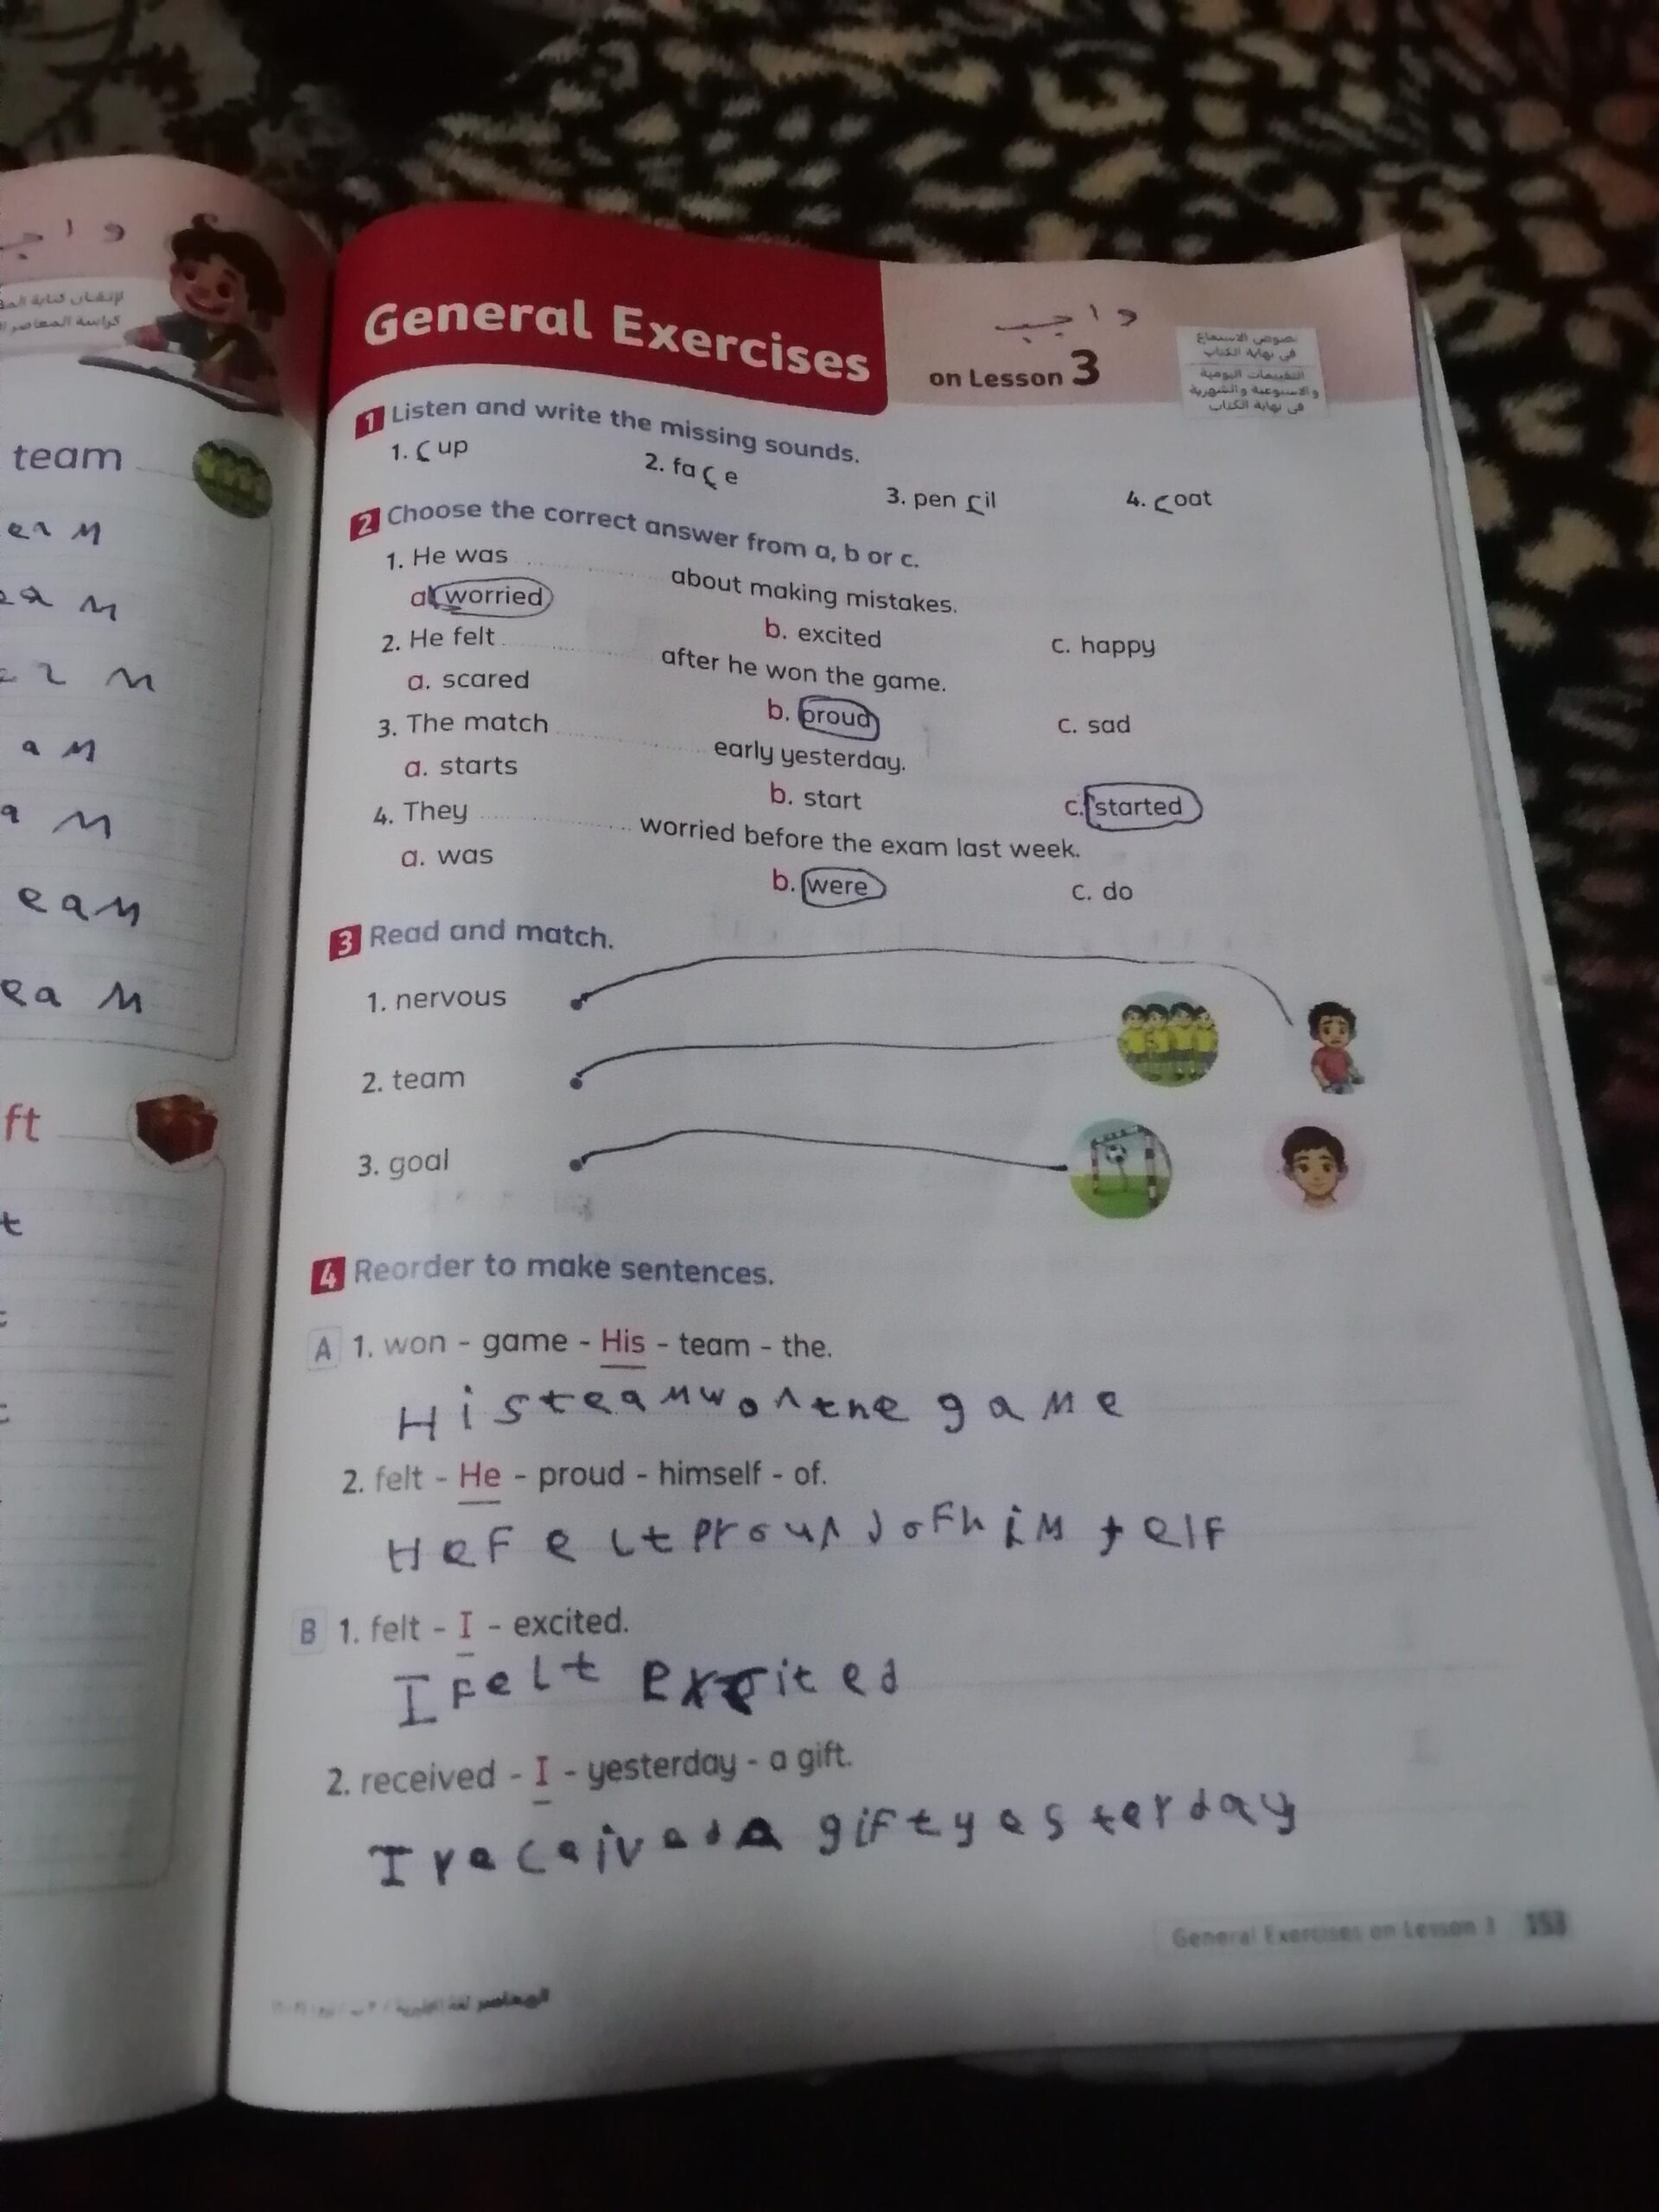 واجب
team
ea m
am
am
eam
ea m
ft
t
General Exercises
on Lesson 3
واجب
نصوص الاستماع
في نهاية الكتاب
التقييمات اليومية
والأسبوعية والشهرية
في نهاية الكتاب
1 Listen and write the missing sounds.
1. c up 2. fa c e 3. pen c il 4. c oat
2 Choose the correct answer from a, b or c.
1. He was .......... about making mistakes.
a. worried b. excited c. happy
2. He felt .......... after he won the game.
a. scared b. proud c. sad
3. The match .......... early yesterday.
a. starts b. start c. started
4. They .......... worried before the exam last week.
a. was b. were c. do
3 Read and match.
1. nervous
2. team
3. goal
4 Reorder to make sentences.
A 1. won - game - His - team - the.
His team won the game
2. felt - He - proud - himself - of.
He Felt proud oF himselF
B 1. felt - I - excited.
I Felt excited
2. received - I - yesterday - a gift.
I received a giFt yesterday
General Exercises on Lesson 3 153
المعاصر لغة إنجليزية